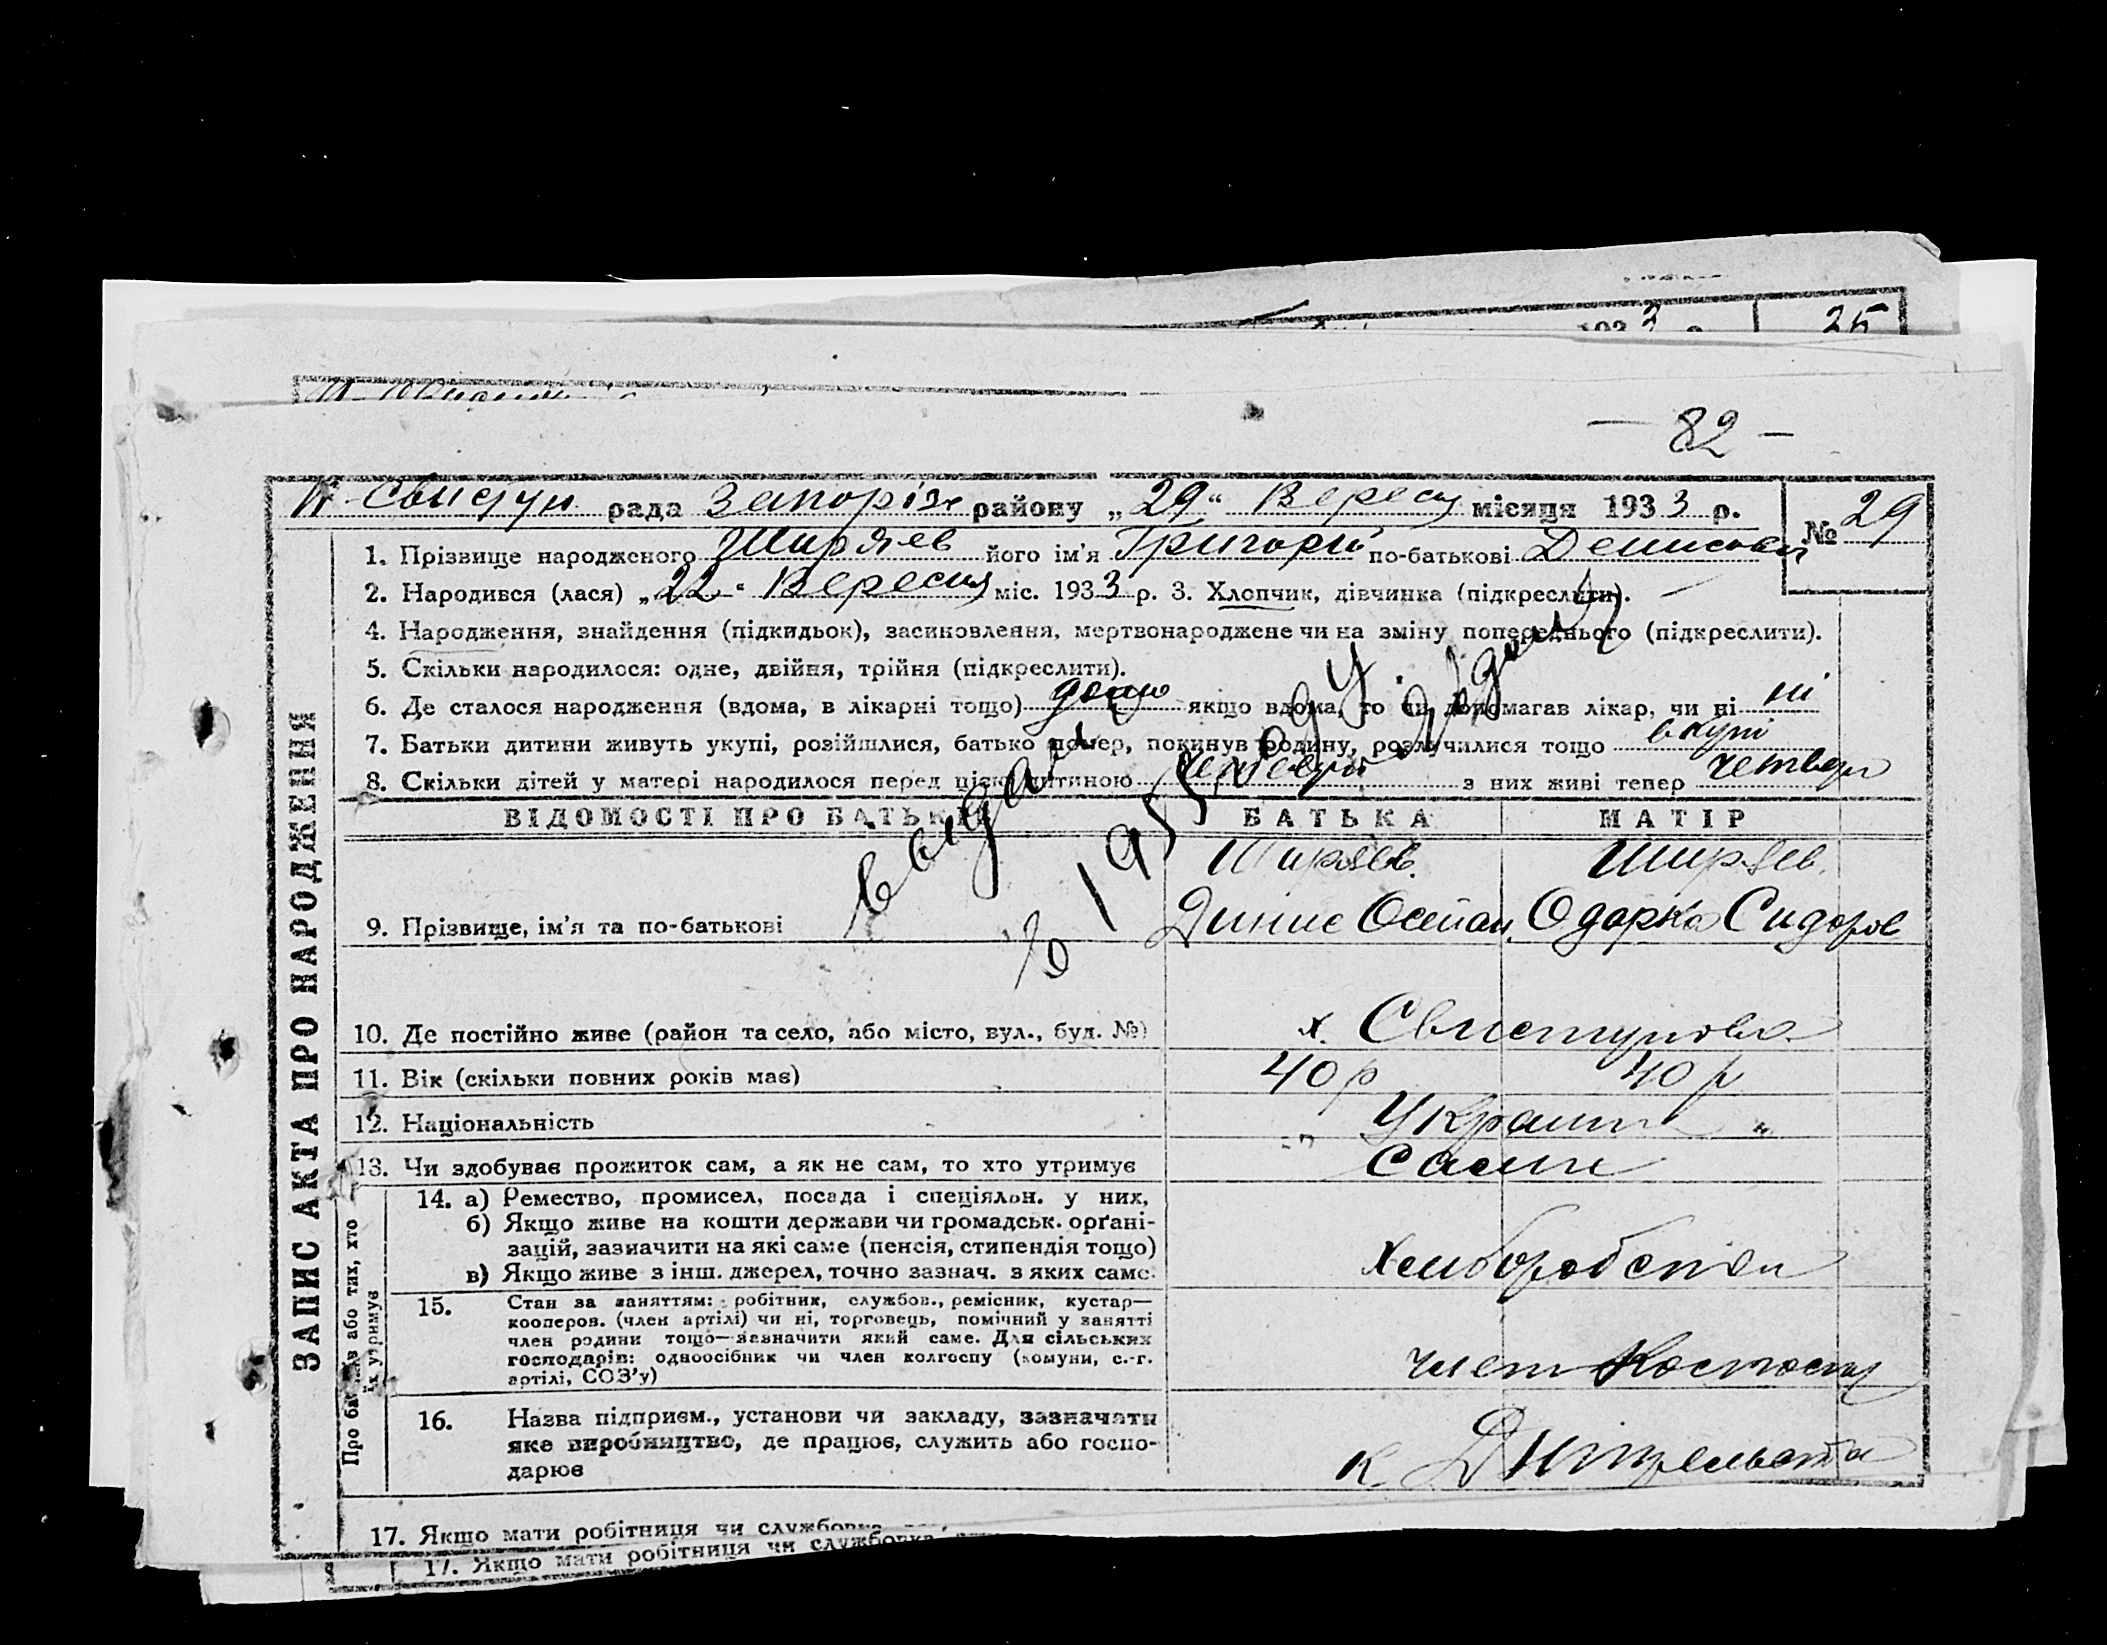 1933 р. 25
— 82 —
Н-Свистун рада Запоріж району „29" Вересн місяця 1933 р. № 29
ЗАПИС АКТА ПРО НАРОДЖЕННЯ
1. Прізвище народженого Ширяев його ім'я Григорій по-батькові Денисович
2. Народився (лася) „22" Вересня міс. 1933 р. 3. Хлопчик, дівчинка (підкреслити).
4. Народження, знайдення (підкидьок), засиновлення, мертвонароджене чи на зміну попереднього (підкреслити).
5. Скільки народилося: одне, двійня, трійня (підкреслити).
6. Де сталося народження (вдома, в лікарні тощо) дома якщо вдома, то чи допомагав лікар, чи ні ні
7. Батьки дитини живуть укупі, розійшлися, батько помер, покинув родину, розлучилися тощо вкупі
8. Скільки дітей у матері народилося перед цією дитиною четверо з них живі тепер четверо
в 1955 году
ВІДОМОСТІ ПРО БАТЬКІВ БАТЬКА МАТІР
Ширяев. Ширяев.
9. Прізвище, ім'я та по-батькові Динис Осипов. Одарка Сидоров
10. Де постійно живе (район та село, або місто, вул., буд. №) х. Свистунова
11. Вік (скільки повних років має) 40 р 40 р
12. Національність " Украин "
13. Чи здобуває прожиток сам, а як не сам, то хто утримує сами
Про батьків або тих, хто їх утримує
14. а) Ремество, промисел, посада і спеціяльн. у них,
б) Якщо живе на кошти держави чи громадськ. орґані-
зацій, зазначити на які саме (пенсія, стипендія тощо)
в) Якщо живе з інш. джерел, точно зазнач. з яких саме.
15. Стан за заняттям: робітник, службов., ремісник, кустар—
кооперов. (член артілі) чи ні, торговець, помічний у занятті
член родини тощо—зазначити який саме. Для сільських
господарів: одноосібник чи член колгоспу (комуни, с.-г.
артілі, СОЗ'у)
16. Назва підприєм., установи чи закладу, зазначати
яке виробництво, де працює, служить або госпо-
дарює
17. Якщо мати робітниця чи службовка
17. Якщо мати робітниця чи службовка